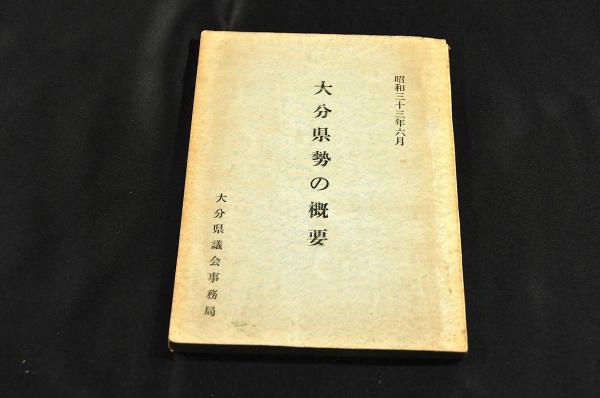 昭和三十三年六月
大分県勢の概要
大分県議会事務局